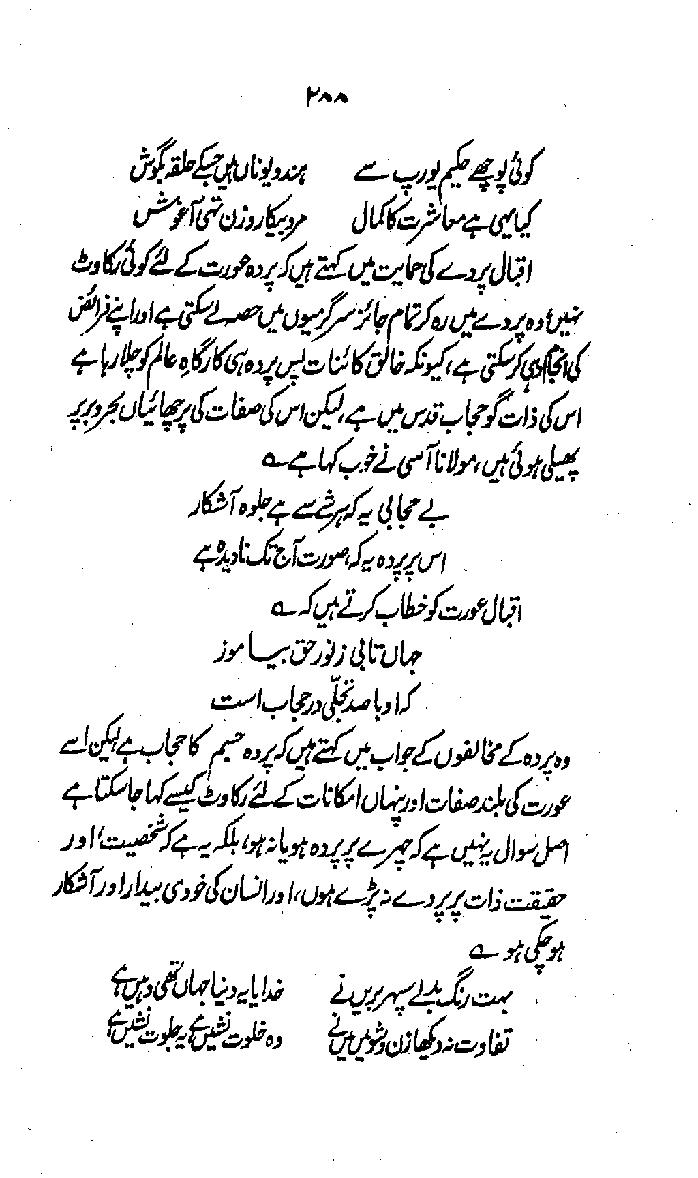 ۲۸۸
کوئی پوچھے حکیم یورپ سے ہند و یوناں ہیں جسکے حلقہ بگوش
کیا یہی ہے معاشرت کا کمال مرد بیکار و زن تہی آغوش
اقبال پردے کی حمایت میں کہتے ہیں کہ پردہ عورت کے لئے کوئی رکاوٹ
نہیں، وہ پردے میں رہ کر تمام جائز سرگرمیوں میں حصہ لے سکتی ہے اور اپنے فرائض
کی انجام دہی کر سکتی ہے، کیونکہ خالق کائنات پس پردہ ہی کارگاہِ عالم کو چلا رہا ہے
اس کی ذات گو حجاب قدس میں ہے، لیکن اس کی صفات کی پرچھائیاں بحر و بر پر
پھیلی ہوئی ہیں، مولانا آسی نے خوب کہا ہے ؎
بے حجابی یہ کہ ہر شے سے ہے جلوہ آشکار
اس پر پردہ یہ کہ صورت آج تک نادیدہ ہے
اقبال عورت کو خطاب کرتے ہیں کہ ؎
جہاں تابی ز نور حق بیاموز
کہ او با صد تجلّی در حجاب است
وہ پردہ کے مخالفوں کے جواب میں کہتے ہیں کہ پردہ جسم کا حجاب ہے لیکن اسے
عورت کی بلند صفات اور پنہاں امکانات کے لئے رکاوٹ کیسے کہا جا سکتا ہے
اصل سوال یہ نہیں ہے کہ چہرے پر پردہ ہو یا نہ ہو، بلکہ یہ ہے کہ شخصیت، اور
حقیقت ذات پر پردے نہ پڑے ہوں، اور انسان کی خودی بیدار اور آشکار
ہو چکی ہو ؎
بہت رنگ بدلے سپہر بریں نے خدایا یہ دنیا جہاں تھی وہیں ہے
تفاوت نہ دیکھا زن و شو میں میں نے وہ خلوت نشیں ہے یہ جلوت نشیں ہے